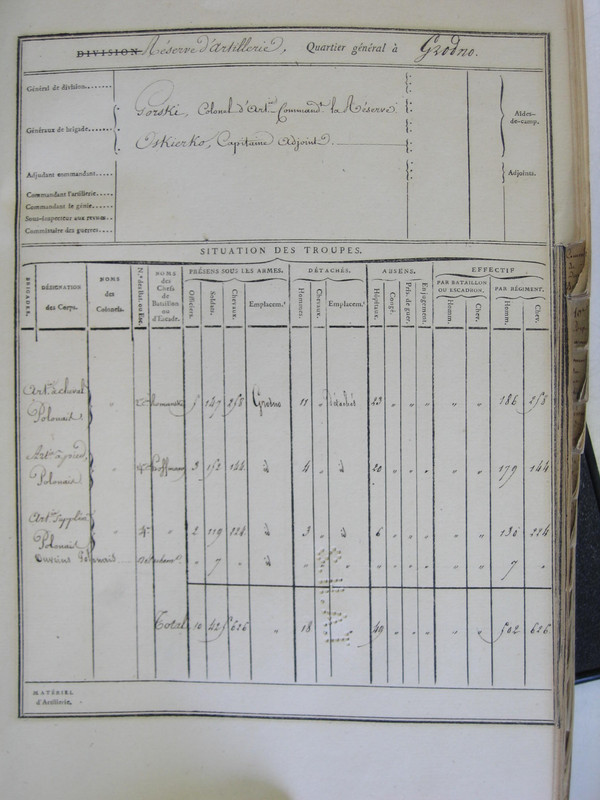 DIVISION Réserve d'Artillerie, Quartier général à Grodno.
Général de division.......
Généraux de brigade.......
Gorski, Colonel d'Art.rie Command.t la Réserve.
Oskierko, Capitaine Adjoint.
Aides-de-camp.
Adjudant commandant.....
Adjoints.
Commandant l'artillerie....
Commandant le génie.....
Sous-inspecteur aux revues...
Commissaire des guerres....
SITUATION DES TROUPES.
BRIGADES. DÉSIGNATION des Corps. NOMS des Colonels. N.os des Bat. ou Esc. NOMS des Chefs de Bataillon ou d'Escad. PRÉSENS SOUS LES ARMES. DÉTACHÉS. ABSENS. EFFECTIF
PAR BATAILLON OU ESCADRON. PAR RÉGIMENT.
Officiers. Soldats. Chevaux. Emplacem.t Hommes. Chevaux. Emplacem.t Hôpitaux. Congé. Pris. de guer. En jugement. Homm. Chev. Homm. Chev.
Art.ie à cheval
Polonaise " 5 147 258 Grodno 11 " Détachés 23 " " " " " 186 258
Art.ie à pied
Polonais " Hoffmann 3 152 144 d 4 " d 20 " " " " " 179 144
Art. Supplém.
Polonais " " 2 119 224 d 3 " d 6 " " " " " 130 224
Ouvriers Polonais " 7 " d " " " " " " " 7 "
Total 10 425 626 " 18 49 " " " " " 502 626
MATÉRIEL
d'Artillerie.